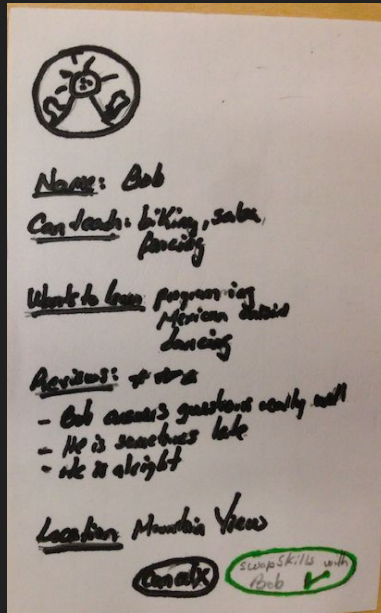 Name: Bob
Can teach: biking, salsa,
dancing
Wants to learn programming
Mexican
dancing
Reviews:
- Bob answers questions really well
- He is sometimes late
- He is alright
Location: Mountain View
Cancel X
swap skills with
Bob ✓